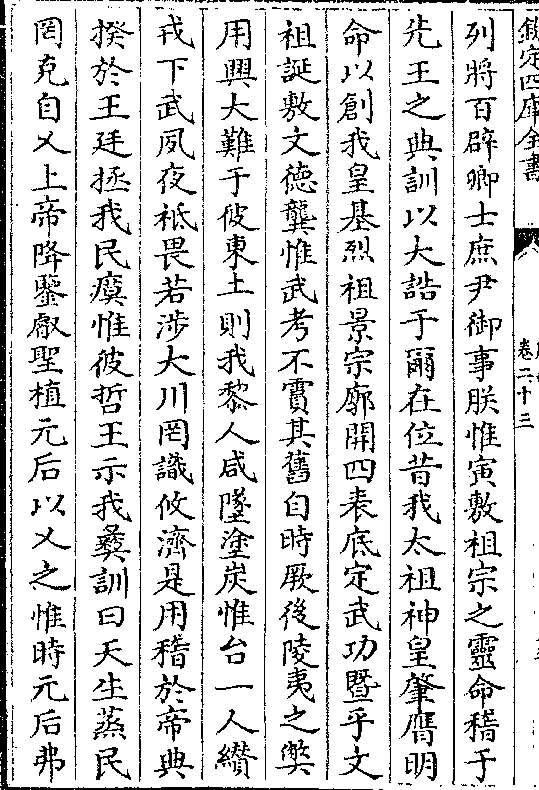 欽定四庫全書
卷二十三
列將百辟卿士庶尹御事朕惟寅敷祖宗之靈命稽于
先王之典訓以大誥于爾在位昔我太祖神皇肇膺明
命以創我皇基烈祖景宗廓開四表底定武功暨乎文
祖誕敷文德龔惟武考不霣其舊自時厥後陵夷之弊
用興大難于彼東土則我黎人咸墜塗炭惟台一人纘
戎下武夙夜祗畏若涉大川罔識攸濟是用稽於帝典
揆於王廷拯我民瘼惟彼哲王示我彝訓曰天生蒸民
罔克自乂上帝降鑒叡聖植元后以乂之惟時元后弗